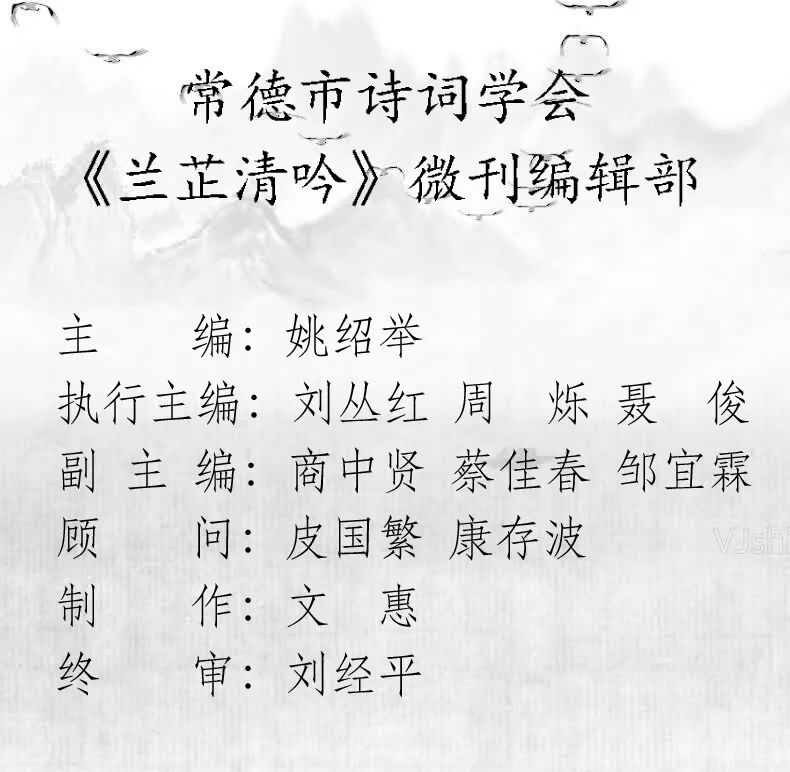 常德市诗词学会
《兰芷清吟》微刊编辑部
主　　编：姚绍举
执行主编：刘丛红 周　烁 聂　俊
副 主 编：商中贤 蔡佳春 邹宜霖
顾　　问：皮国繁 康存波
VJshi
制　　作：文　惠
终　　审：刘经平